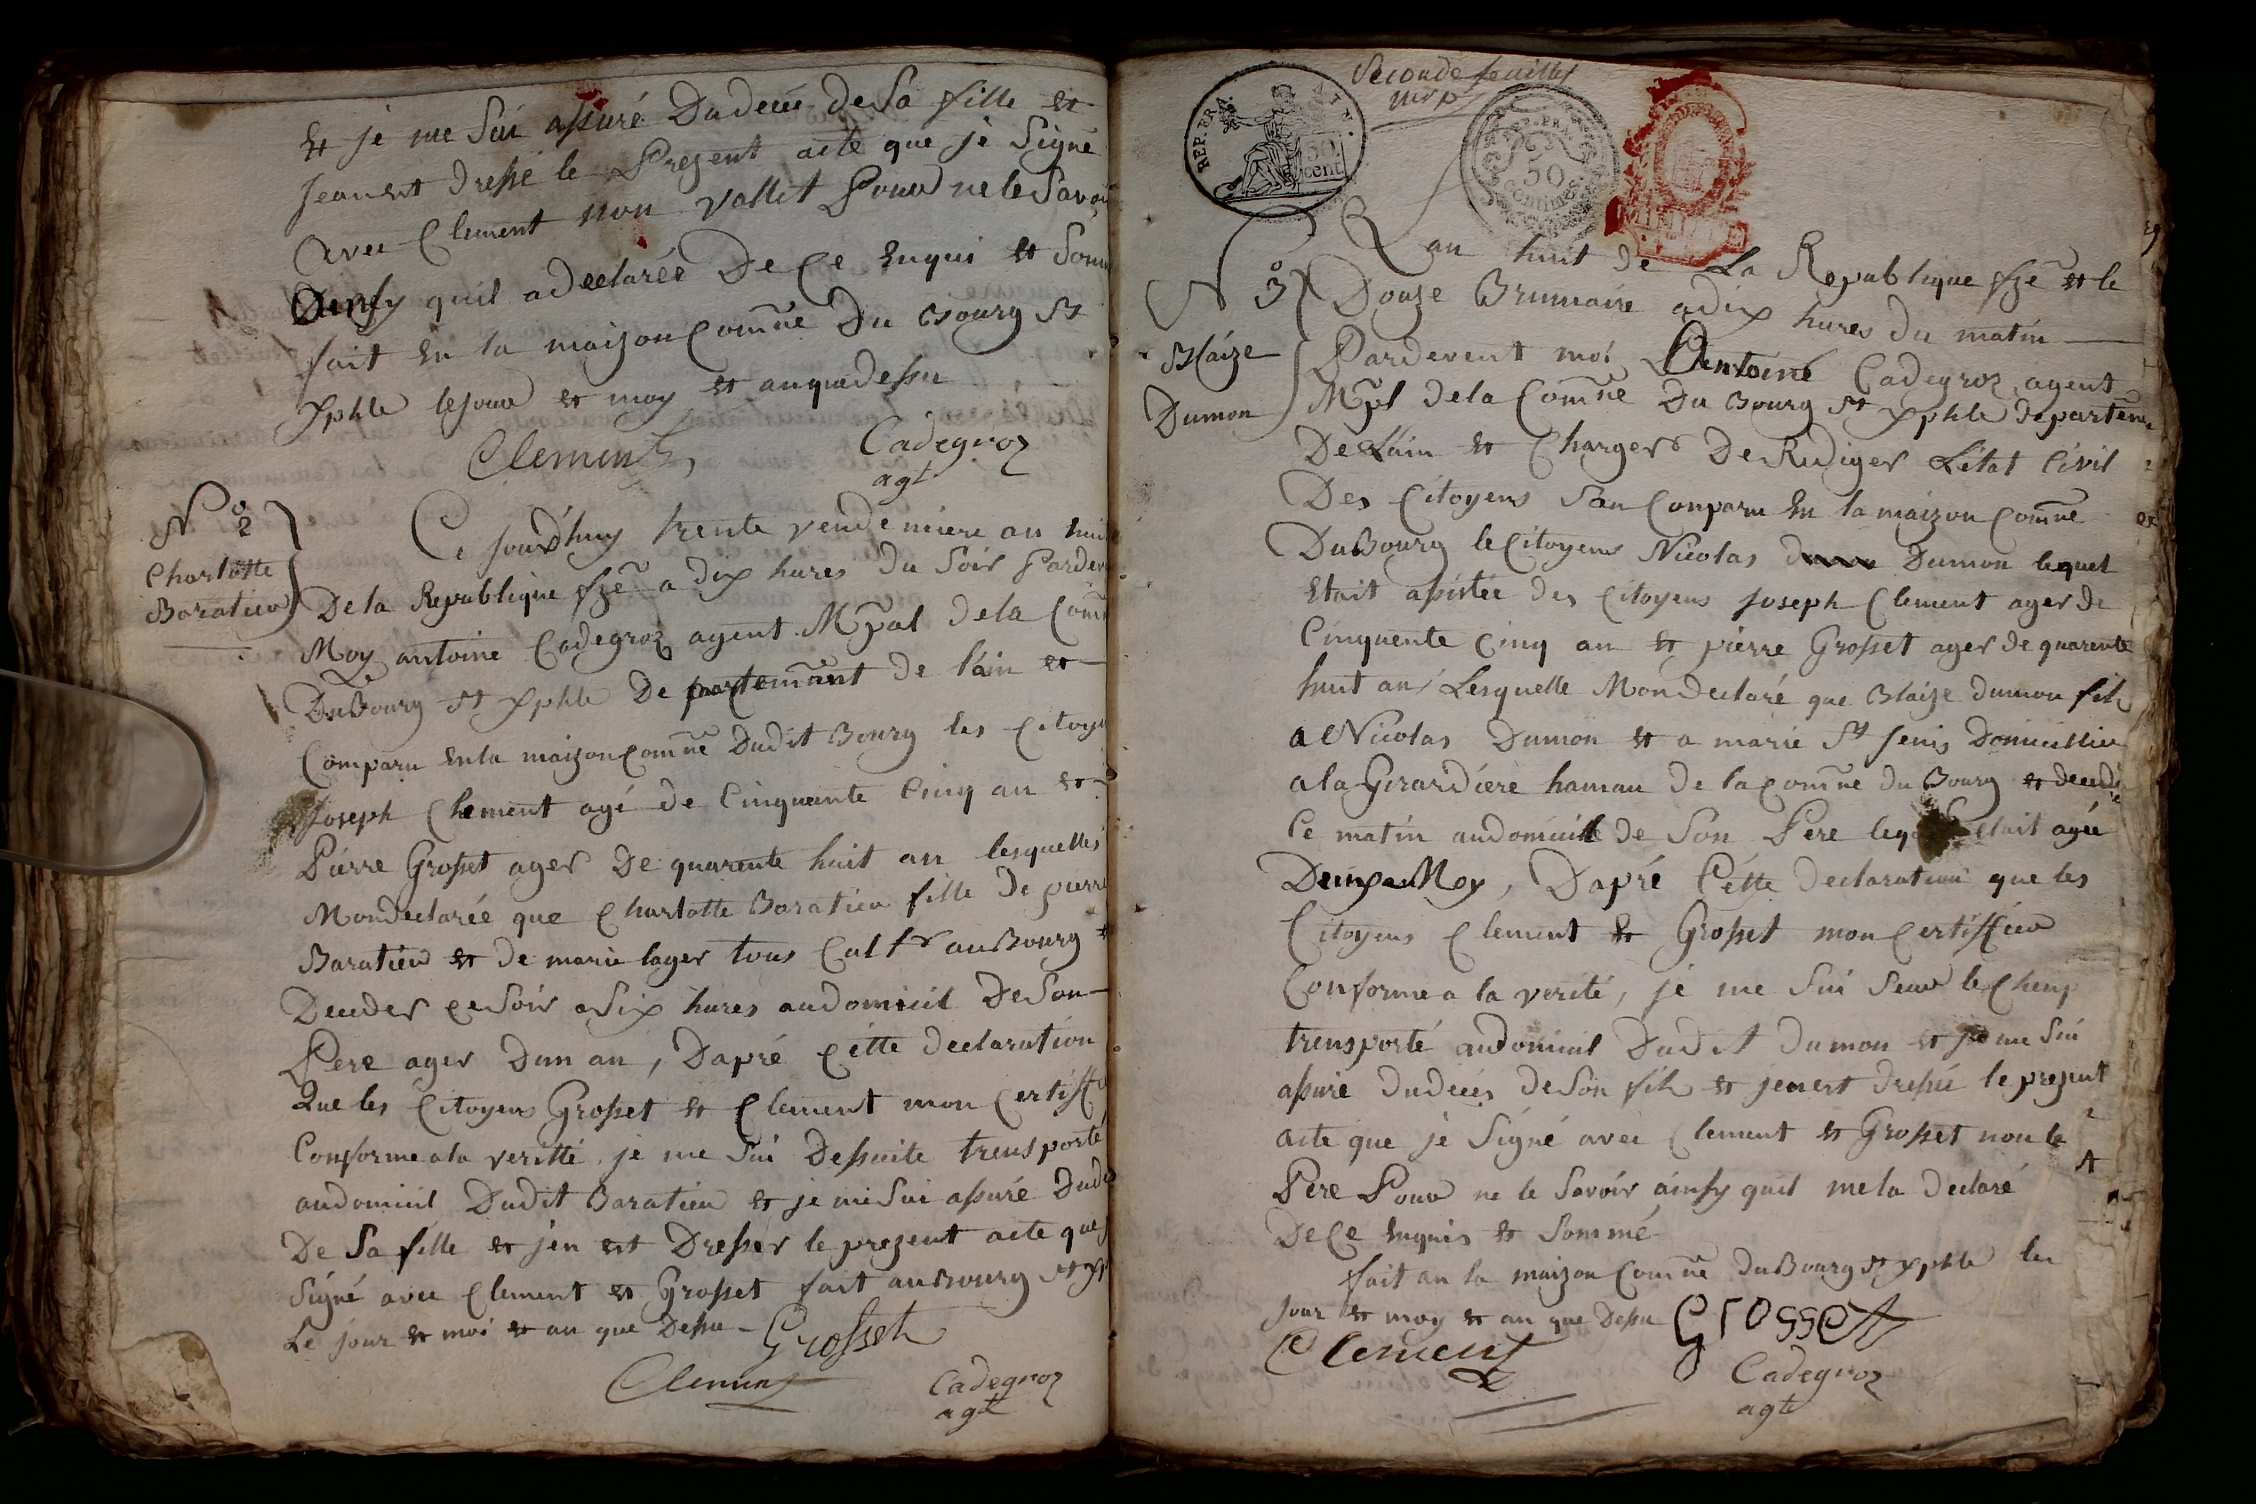 et je me sui assuré Dudecée de sa fille et
jeanest dressé le Present acte que je signé
avec Clement non vallit Pour ne le Savoi
Ainsy quil adeclarée De Ce enquis et Somm
fait en la maizon Comũne Du Bourg St
Xphle lejour et moy et anquedessu
Clement
Cadegroz
agt
No 2
Charlotte
Baratier
Ce jourdhuy trente vendemiere an huit
De la Republique fse a dix hures du Soir Parder
Moy antoine Cadegroz agent Mpal dela Comũ
DuBourg St Xphle De partemant de l'ain et
Comparu enla maizon Comũne Dudit Bourg les Citoye
Joseph Clement agé de Cinquante Cinq an et
Pierre Grosset ager De quarente huit an lesquelles
Mondeclarée que Charlotte Baratier fille De pierre
Baratier et de marie lager tous Caltr auBourg et
Deceder ceSoir aSix hures audomicil DeSon
Pere ager Dun an, Dapré Cette declaration
Que les Citoyens Grosset et Clement mon Certiff
Conforme ala veritté je me Sui Dessuite trensporté
audomicil Dudit Baratier et je me Sui assuré Dude
De Sa fille et jen est Dresser le prezent acte que
Signé avec Clement et Grosset fait auBourg St Xp
Le jour et moi et an que Dessu
Grosset
Clement
Cadegroz
agt
Seconde feuilles
REP. FRA.
50
cent.
REP. FRA.
50
centimes
Lan huit de La Republique fse et le
No 3
Douze Brumaire adix hures du matin
Blaize
Dumon
Pardevent moi Antoine Cadegroz agent
Mpl dela Comũne Du Bourg St Xphle departem
De Lain et Charger De Rediger Létat Civil
Des Citoyens San Comparu En la maizon Comũne
DuBourg le Citoyens Nicolas Dumon lequel
Etait assistée des Citoyens Joseph Clement ager de
Cinquente Cinq an et pierre Grosset ager de quarente
huit an, Lesquelle Mondeclaré que Blaize dumon fils
a Nicolas Dumon et a marie St Jenis Domicillier
a la Girardiere hamau de la Comũne du Bourg et decedé
Ce matin audomicil de Son Pere leq était agée
Deux Moy, Dapré Cette declaration que les
Citoyens Clement et Grosset mon Certiffier
Conforme a la verité, je me Sui Seur le Chemp
trensporté audomicil Dudit dumon et je me Sui
assuré dudecés deSon fils et jenest dressée le prezent
acte que je Signé avec Clement et Grosset non le
Pere Pour ne le Savoir ainsy quil mela declaré
De Ce enquis et Sommé
fait an la maizon Comũne duBourg St Xphle les
jour et moy et an que Dessu
Grosset
Clement
Cadegroz
agt